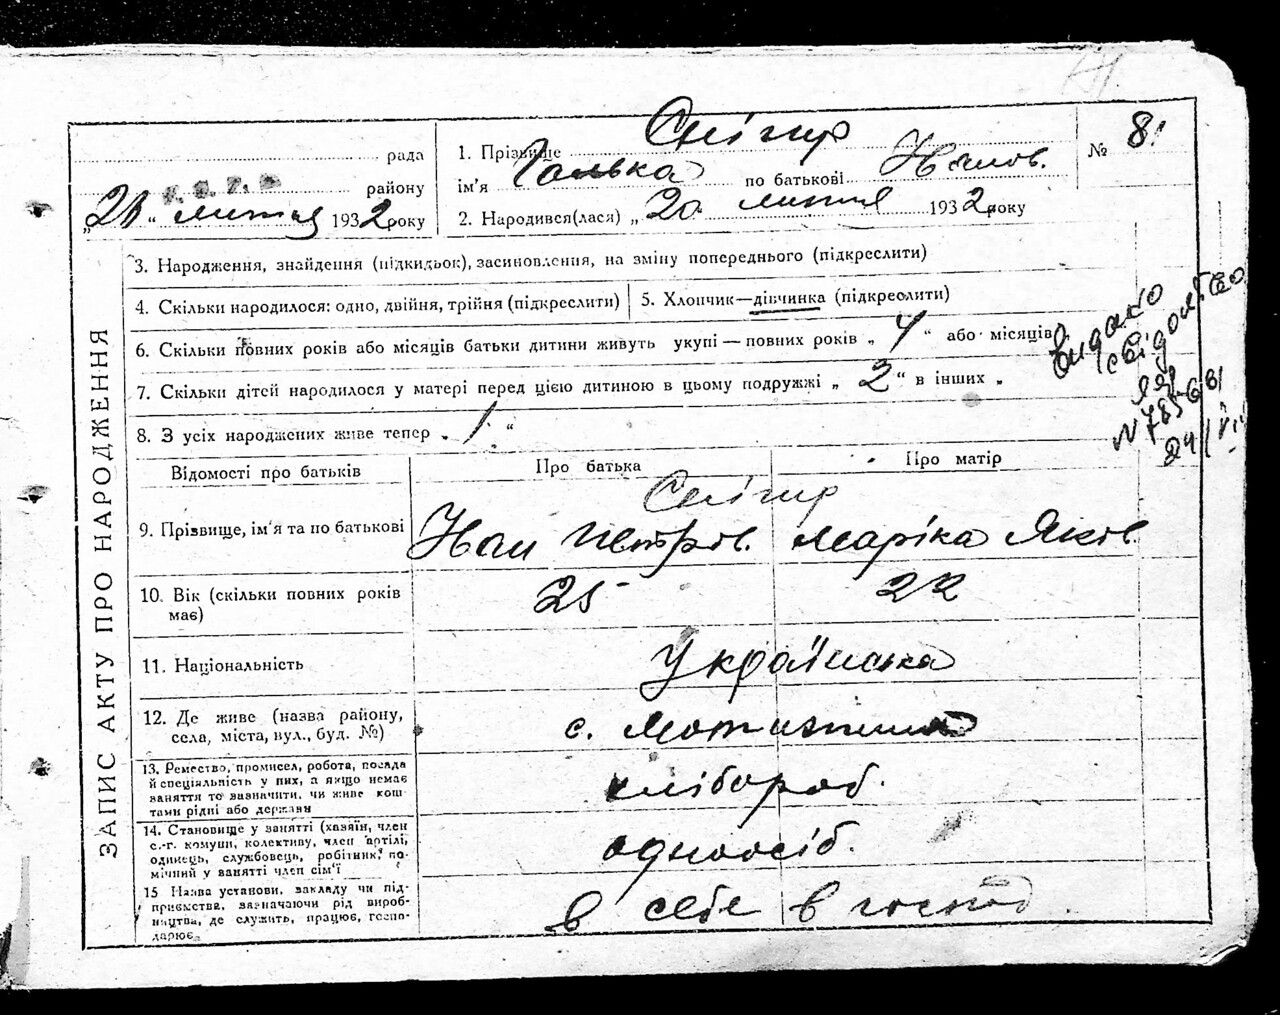 рада
району
„21“ лютня 1932 року
1. Прізвище Снігир
ім'я Галька по батькові Іванов.
2. Народився(лася) „20 лютня 1932 року
№ 81
3. Народження, знайдення (підкидьок), засиновлення, на зміну попереднього (підкреслити)
4. Скільки народилося: одно, двійня, трійня (підкреслити)
5. Хлопчик—дівчинка (підкреслити)
6. Скільки повних років або місяців батьки дитини живуть укупі — повних років „ 4 “ або місяців
7. Скільки дітей народилося у матері перед цією дитиною в цьому подружжі „ 2 “ в інших „
8. З усіх народжених живе тепер „ 1 “
видано
свідоцтво
N 785681
24/VII
ЗАПИС АКТУ ПРО НАРОДЖЕННЯ
Відомості про батьків
Про батька
Про матір
Снігир
9. Прізвище, ім'я та по батькові
Іван Петров. Маріка Яков.
10. Вік (скільки повних років
має)
25
22
11. Національність
Українська
12. Де живе (назва району,
села, міста, вул., буд. №)
с. Мотижин
13. Ремество, промисел, робота, посада
й спеціяльність у них, а якщо немає
заняття то зазначити, чи живе кош-
тами рідні або держави
хлібороб.
14. Становище у занятті (хазяїн, член
с.-г. комуни, колективу, член артілі,
одинець, службовець, робітник, по-
мічний у занятті член сім'ї
одноосіб.
15 Назва установи, закладу чи під-
приємства, зазначаючи рід вироб-
ництва, де служить, працює, госпо-
дарює
в себе в господ.